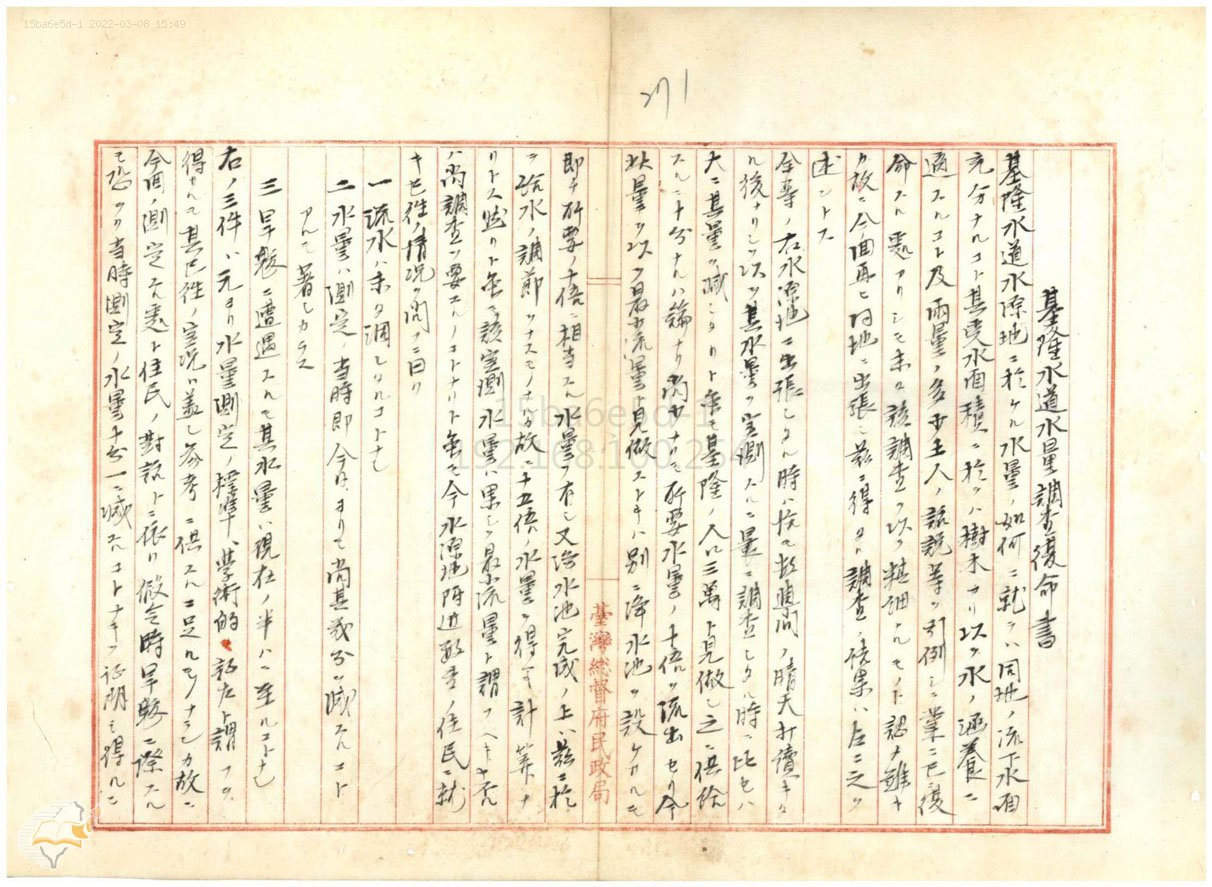 15ba6e5d-1 2022-03-08 15:49
271
基隆水道水量調査復命書
基隆水道水源地ニ於ケル水量ノ如何ニ就テハ同地ノ流下水面
充分ナルコト其受水面積ニ於テハ樹木アリ以テ水ノ涵養ニ
適スルコト及雨量ノ多キ土人ノ談説等ヲ引例シ業ニ已復
命スル処アリシモ未タ該調査ヲ以テ精細ナルモノト認メ難キ
カ故ニ今回再ヒ同地ニ出張シ茲ニ得タル調査ノ結果ハ左ニ之ヲ
述ントス
今等ノ右水源地ニ出張シタル時ハ恰モ数週間ノ晴天打續キタ
ル後ナリシヲ以テ其水量ヲ実測スルニ曩ニ調査シタル時ニ比セハ
大ニ其量ヲ減シタリト雖モ基隆ノ人口三萬ト見做シ之ニ供給
スルニ十分ナルハ論ナリ尚少ナクモ所要水量ノ十倍ヲ流出セリ今
此量ヲ以テ最少流量ト見做ストキハ別ニ浄水池ヲ設ケサルモ
臺灣總督府民政局
即チ所要ノ十倍ニ相当スル水量ヲ有シ又浄水池完成ノ上ハ茲ニ於
テ給水ノ調節ヲナスモノナル故ニ十五倍ノ水量ヲ得ヘキ計算ナ
リトス然リト雖モ該実測水量ハ果シテ最小流量ト謂フヘキヤ否
ハ尚調査ヲ要スルノコトナリト雖モ今水源地附近数名ノ住民ニ就
キ已往ノ情況ヲ問フニ曰ク
一 流水ハ未タ涸レタルコトナシ
二 水量ハ測定ノ当時即今日ヨリモ尚其幾分ヲ減スルコト
アルモ著シカラス
三 旱魃ニ遭遇スルモ其水量ハ現在ノ半ハニ至ルコトナシ
右ノ三件ハ元ヨリ水量測定ノ標準、学術的ノ証左ト謂フヲ
得サルモ其已往ノ実況ハ蓋シ参考ニ供スルニ足ルモノナランカ故ニ
今回ノ測定スル処ト住民ノ対話トニ依リ仮令時旱魃ニ際スル
モ恐ラク当時測定ノ水量十分ノ一ニ減スルコトナキヲ証明シ得ルニ
15ba6e5d-1
192.168.100.254